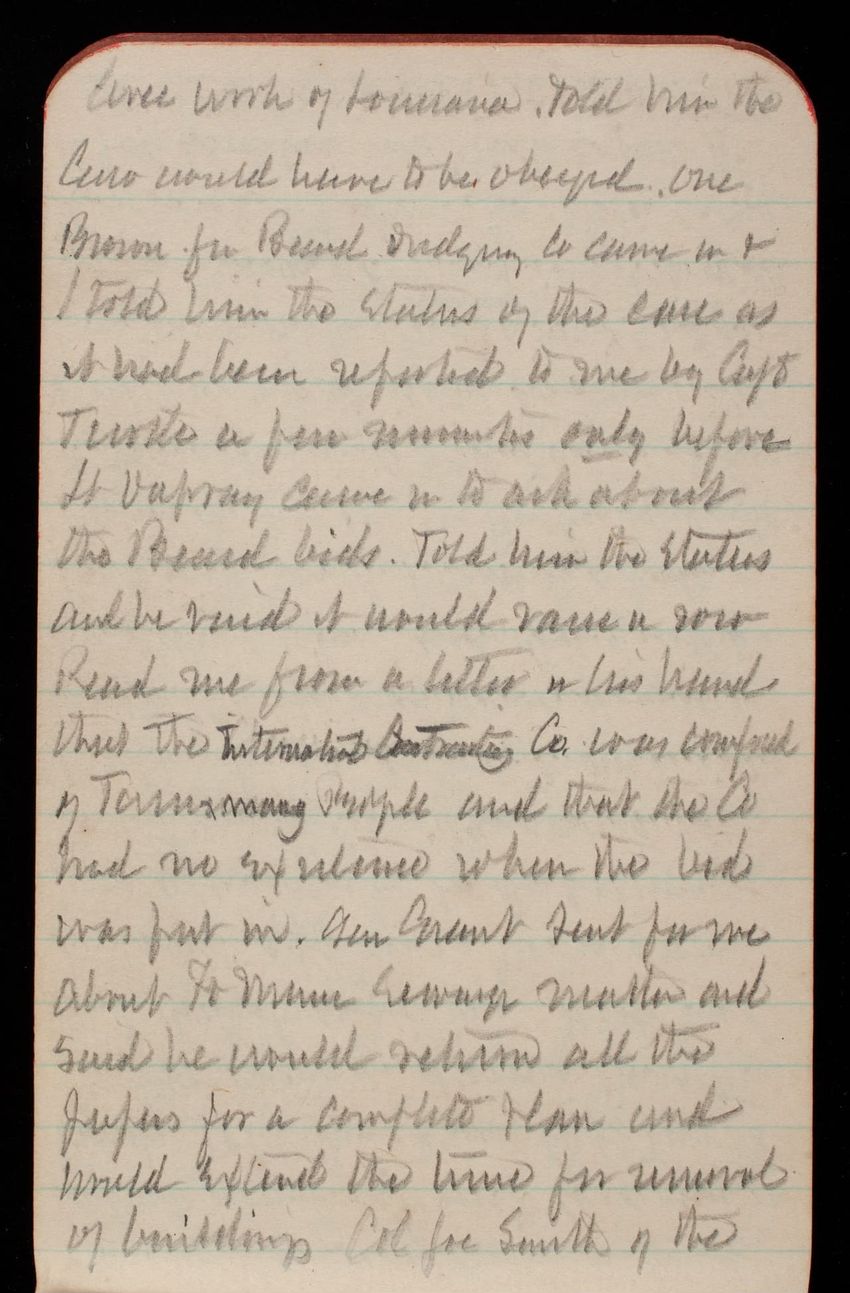 levee work of Louisiana. Told him the
law would have to be obeyed. One
Brown for Beard dredging Co came in &
I told him the status of the case as
it had been reported to me by Capt
Turtle a few minutes only before
Lt came in to ask about
the Beard bids. Told him the status
and he said it would raise a row
Read me from a letter in his hand
that the International Contracting Co. was composed
of Tammany People and that the Co
had no existence when the bid
was put in. Gen Grant sent for me
about Ft Sewerage matter and
said he would return all the
papers for a complete plan and
would extend the time for removal
of buildings Col Joe Smith of the